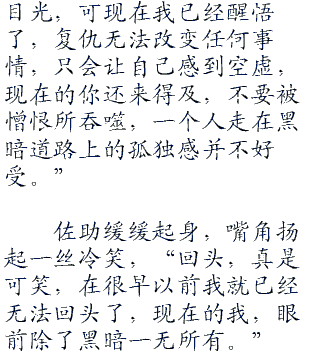 目光，可现在我已经醒悟
了，复仇无法改变任何事
情，只会让自己感到空虚，
现在的你还来得及，不要被
憎恨所吞噬，一个人走在黑
暗道路上的孤独感并不好
受。”
佐助缓缓起身，嘴角扬
起一丝冷笑，“回头，真是
可笑，在很早以前我就已经
无法回头了，现在的我，眼
前除了黑暗一无所有。”